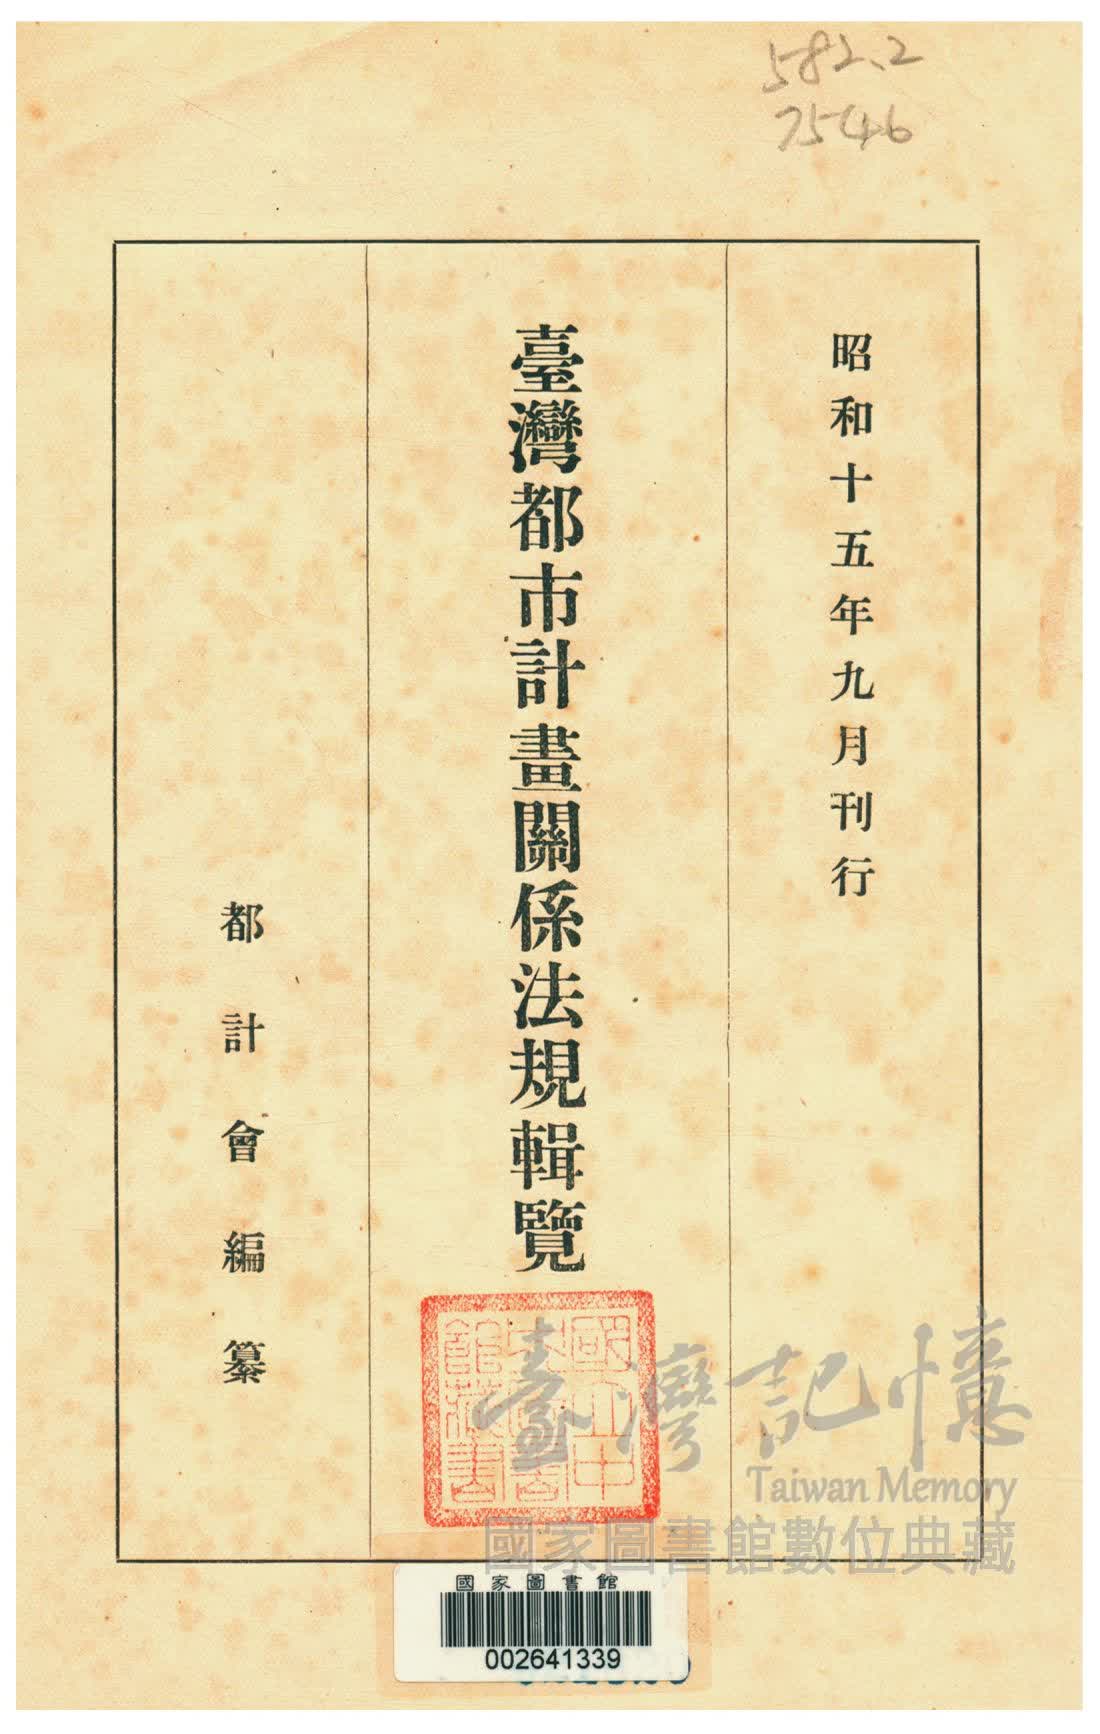 582.2
7546
昭和十五年九月刊行
臺灣都市計畫關係法規輯覽
都計會編纂
國立中
央圖書
館藏書
臺灣記憶
Taiwan Memory
國家圖書館數位典藏
國家圖書館
002641339